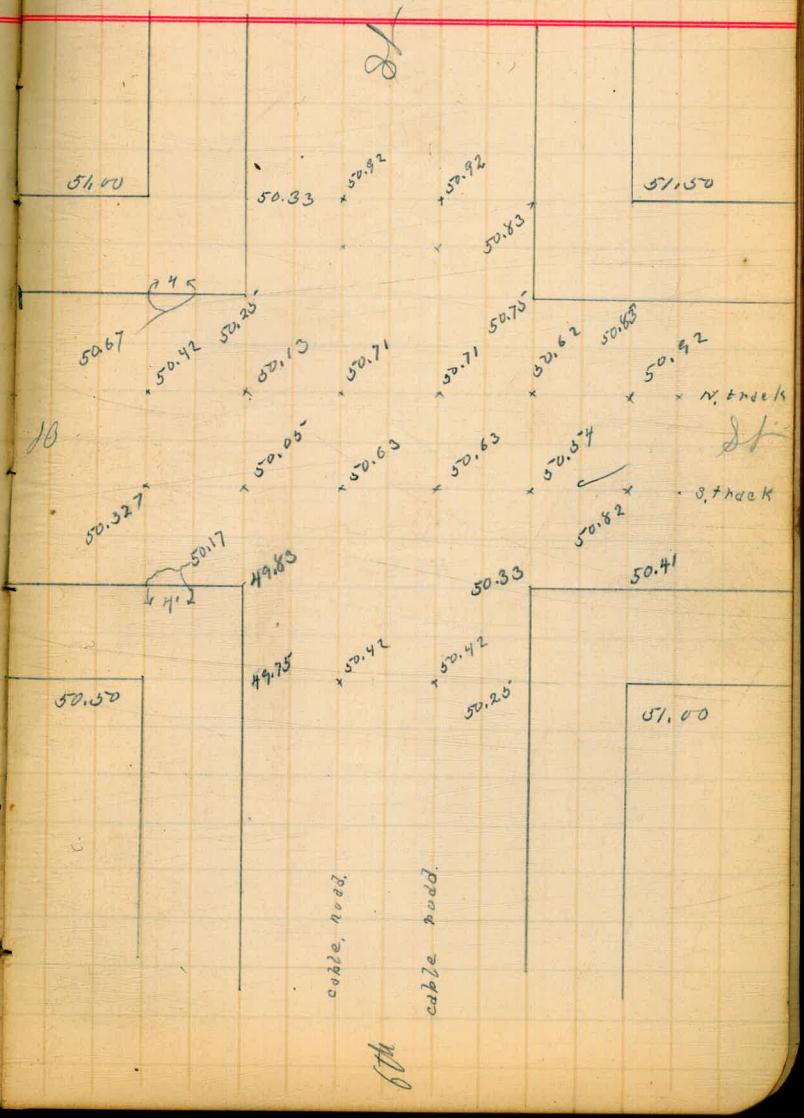 St
51.00
50.33
50.92
50.92
51.50
50.83
4
50.67
50.42
50.25
50.13
50.71
50.71
50.75
50.62
50.83
50.92
N. track
St
50.327
50.05
50.63
50.63
50.54
50.82
S. track
50.17
4'
49.83
50.33
50.41
49.75
50.42
50.42
50.25
50.50
51.00
cable
cable
6th